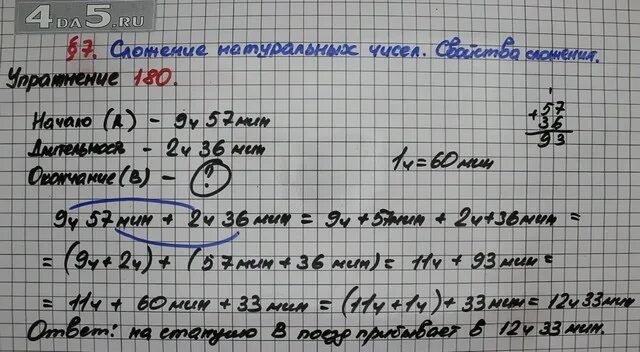 4DA5.RU
§7. Сложение натуральных чисел. Свойства сложения.
Упражнение 180.
Начало (А) – 9ч 57мин
Длительность – 2ч 36 мин
Окончание (В) – ?
1ч = 60 мин
+57
36
93
1
9ч 57 мин + 2ч 36 мин = 9ч + 57мин + 2ч + 36мин =
= (9ч + 2ч) + (57мин + 36 мин) = 11ч + 93 мин =
= 11ч + 60 мин + 33 мин = (11ч + 1ч) + 33 мин = 12ч 33мин
Ответ: на статцию В поезд прибывает в 12ч 33мин.